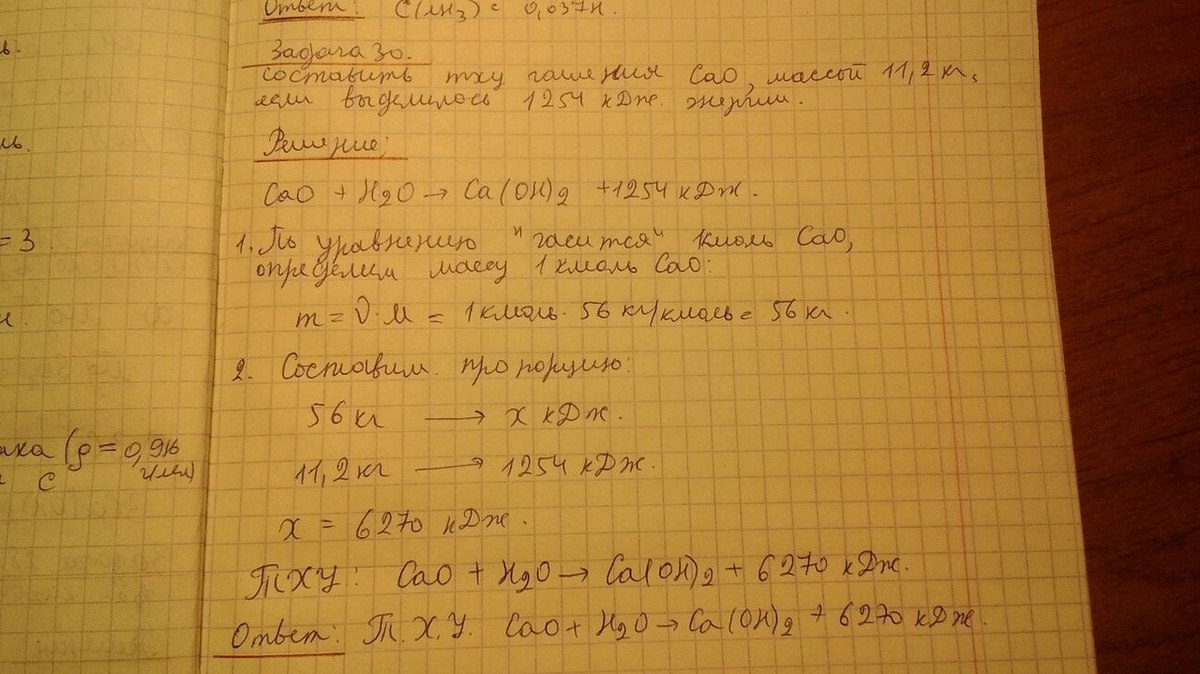 Ответ: C(NH3) = 0,037н.
Задача 30.
Составить тху гашения CaO, массой 11,2 кг,
если выделилось 1254 кДж энергии.
Решение:
CaO + H2O → Ca(OH)2 +1254 кДж.
1. По уравнению "гасится" 1кмоль CaO,
определим массу 1 кмоль CaO:
m = ν·M = 1 кмоль · 56 кг/кмоль = 56 кг.
2. Составим пропорцию:
56 кг → x кДж.
11,2 кг → 1254 кДж.
x = 6270 кДж.
ТХУ: CaO + H2O → Ca(OH)2 + 6270 кДж.
Ответ: Т.Х.У. CaO + H2O → Ca(OH)2 + 6270 кДж.
ь.
ль.
= 3
(ρ = 0,916
г/мл)
C